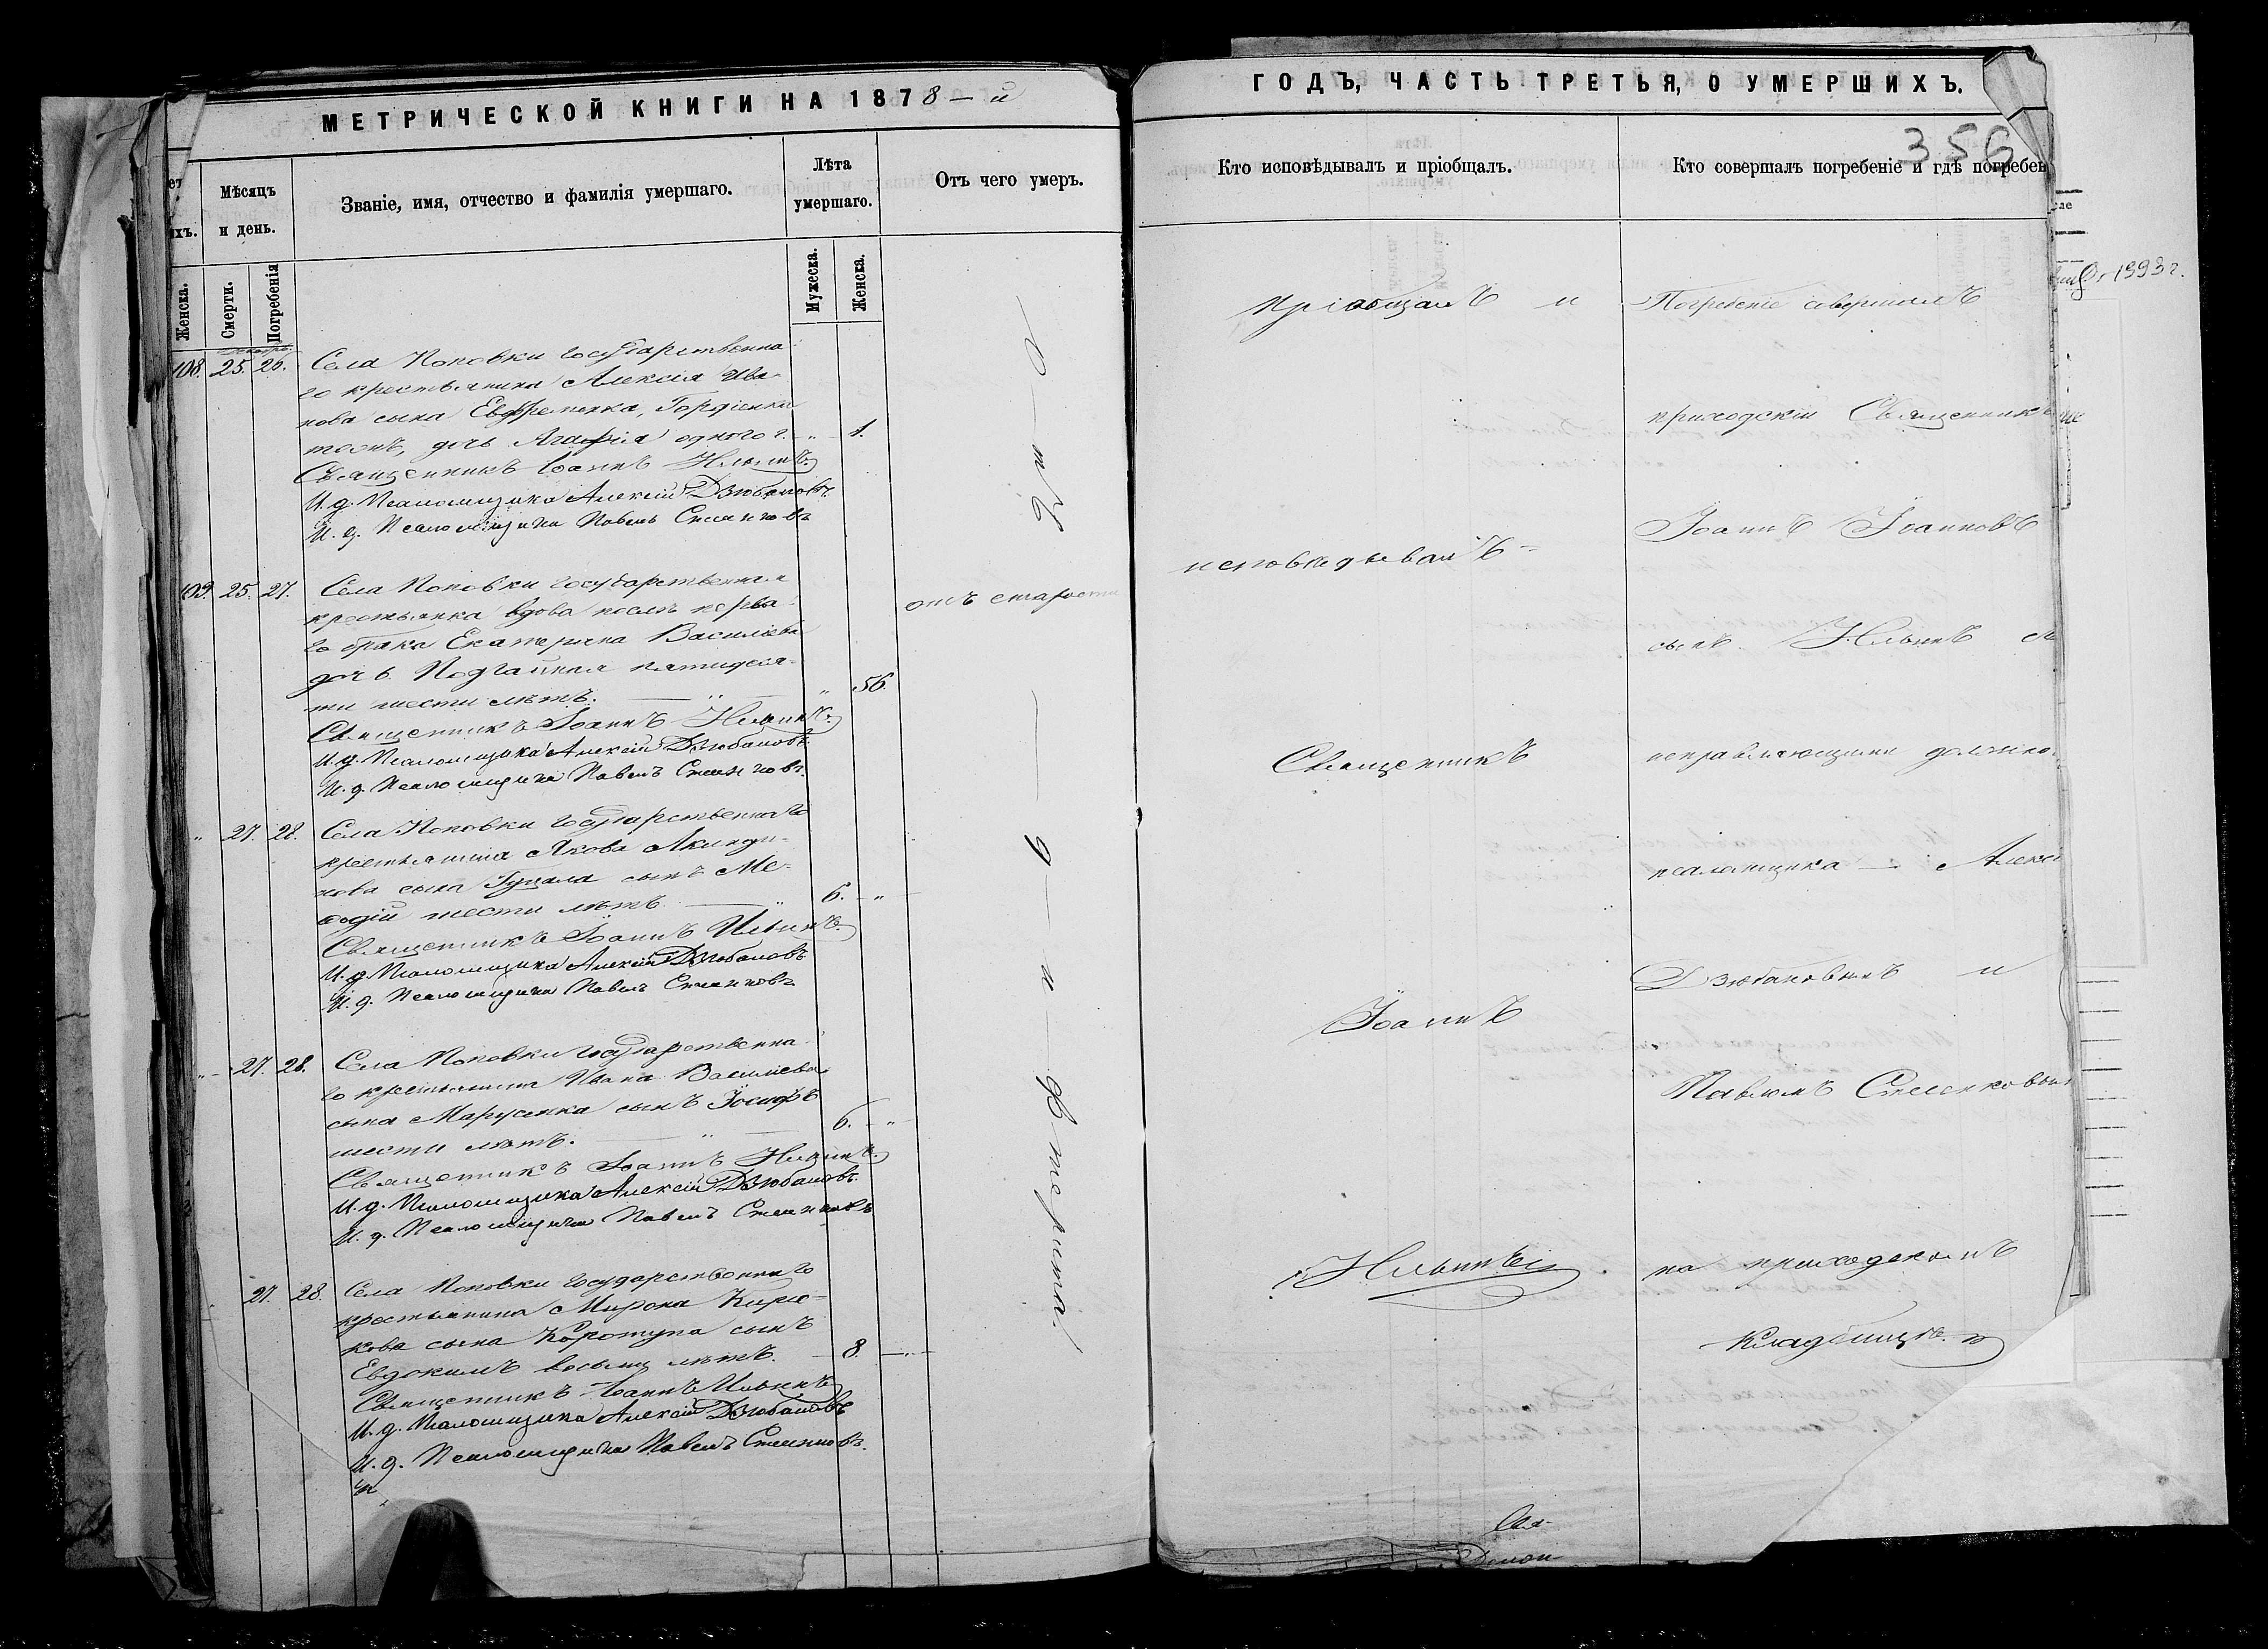 МЕТРИЧЕСКОЙ КНИГИ НА 1878-й
ет
ихъ.
Мѣсяцъ
и день.
Званіе, имя, отчество и фамилія умершаго.
Лѣта
умершаго.
Отъ чего умеръ.
Женска.
Смерти.
Погребенія
Мужеска.
Женска.
108. 25. 26. Села Поповки государственна-
го крестьянина Алексія Ива-
нова сына Евфременка, Гордіенка
тожъ, дочь Агафія одного г. - " - 1.
Священникъ Іоаннъ Ильинъ
И. д. Псаломщика Алексій Дзюбановъ.
И. д. Псаломщика Павелъ
109. 25. 27. Села Поповки государственная
крестьянка вдова послѣ перва-
го брака Екатерина Василіева
дочь Подгайная пятидеся-
ти шести лѣтъ. — " — " 56.
отъ старости
Священникъ Іоаннъ Ильинъ
И. д. Псаломщика Алексій Дзюбановъ.
И. д. Псаломщика Павелъ
" 27. 28. Села Поповки государственнаго
крестьянина Якова Акинди-
нова сына сынъ Ме-
еодій шести лѣтъ — " 6. - "
Священникъ Іоаннъ Ильинъ
И. д. Псаломщика Алексій Дзюбановъ
И. д. Псаломщика Павелъ
" - 27. 28. Села Поповки государственна-
го крестьянина Ивана Василіева
сына Марусенка сынъ Іосифъ
шести лѣтъ. — " — 6. - "
Священникъ Іоаннъ Ильинъ
И. д. Псаломщика Алексій Дзюбановъ.
И. д. Псаломщика Павелъ
27. 28. Села Поповки государственнаго
крестьянина Мирона
кова сына Коротуна сынъ
Евдокимъ восьми лѣтъ. — 8. — " —
Священникъ Іоаннъ Ильинъ
И. д. Псаломщика Алексій Дзюбановъ
И. д. Псаломщика Павелъ
О — тъ — д — и — фтерита
ГОДЪ, ЧАСТЬ ТРЕТЬЯ, О УМЕРШИХЪ.
356
Кто исповѣдывалъ и пріобщалъ.
Кто совершалъ погребеніе и гдѣ погребен
пріобщалъ и
исповѣдывалъ
Священникъ
Іоаннъ
Ильинъ
Погребеніе совершалъ
приходскій Священникъ
Іоаннъ Іоанновъ
сынъ Ильинъ
исправляющими должно
псаломщика — Алекс
Дзюбановымъ и
Павломъ
на приходскомъ
кладбищѣ.
1993 г.